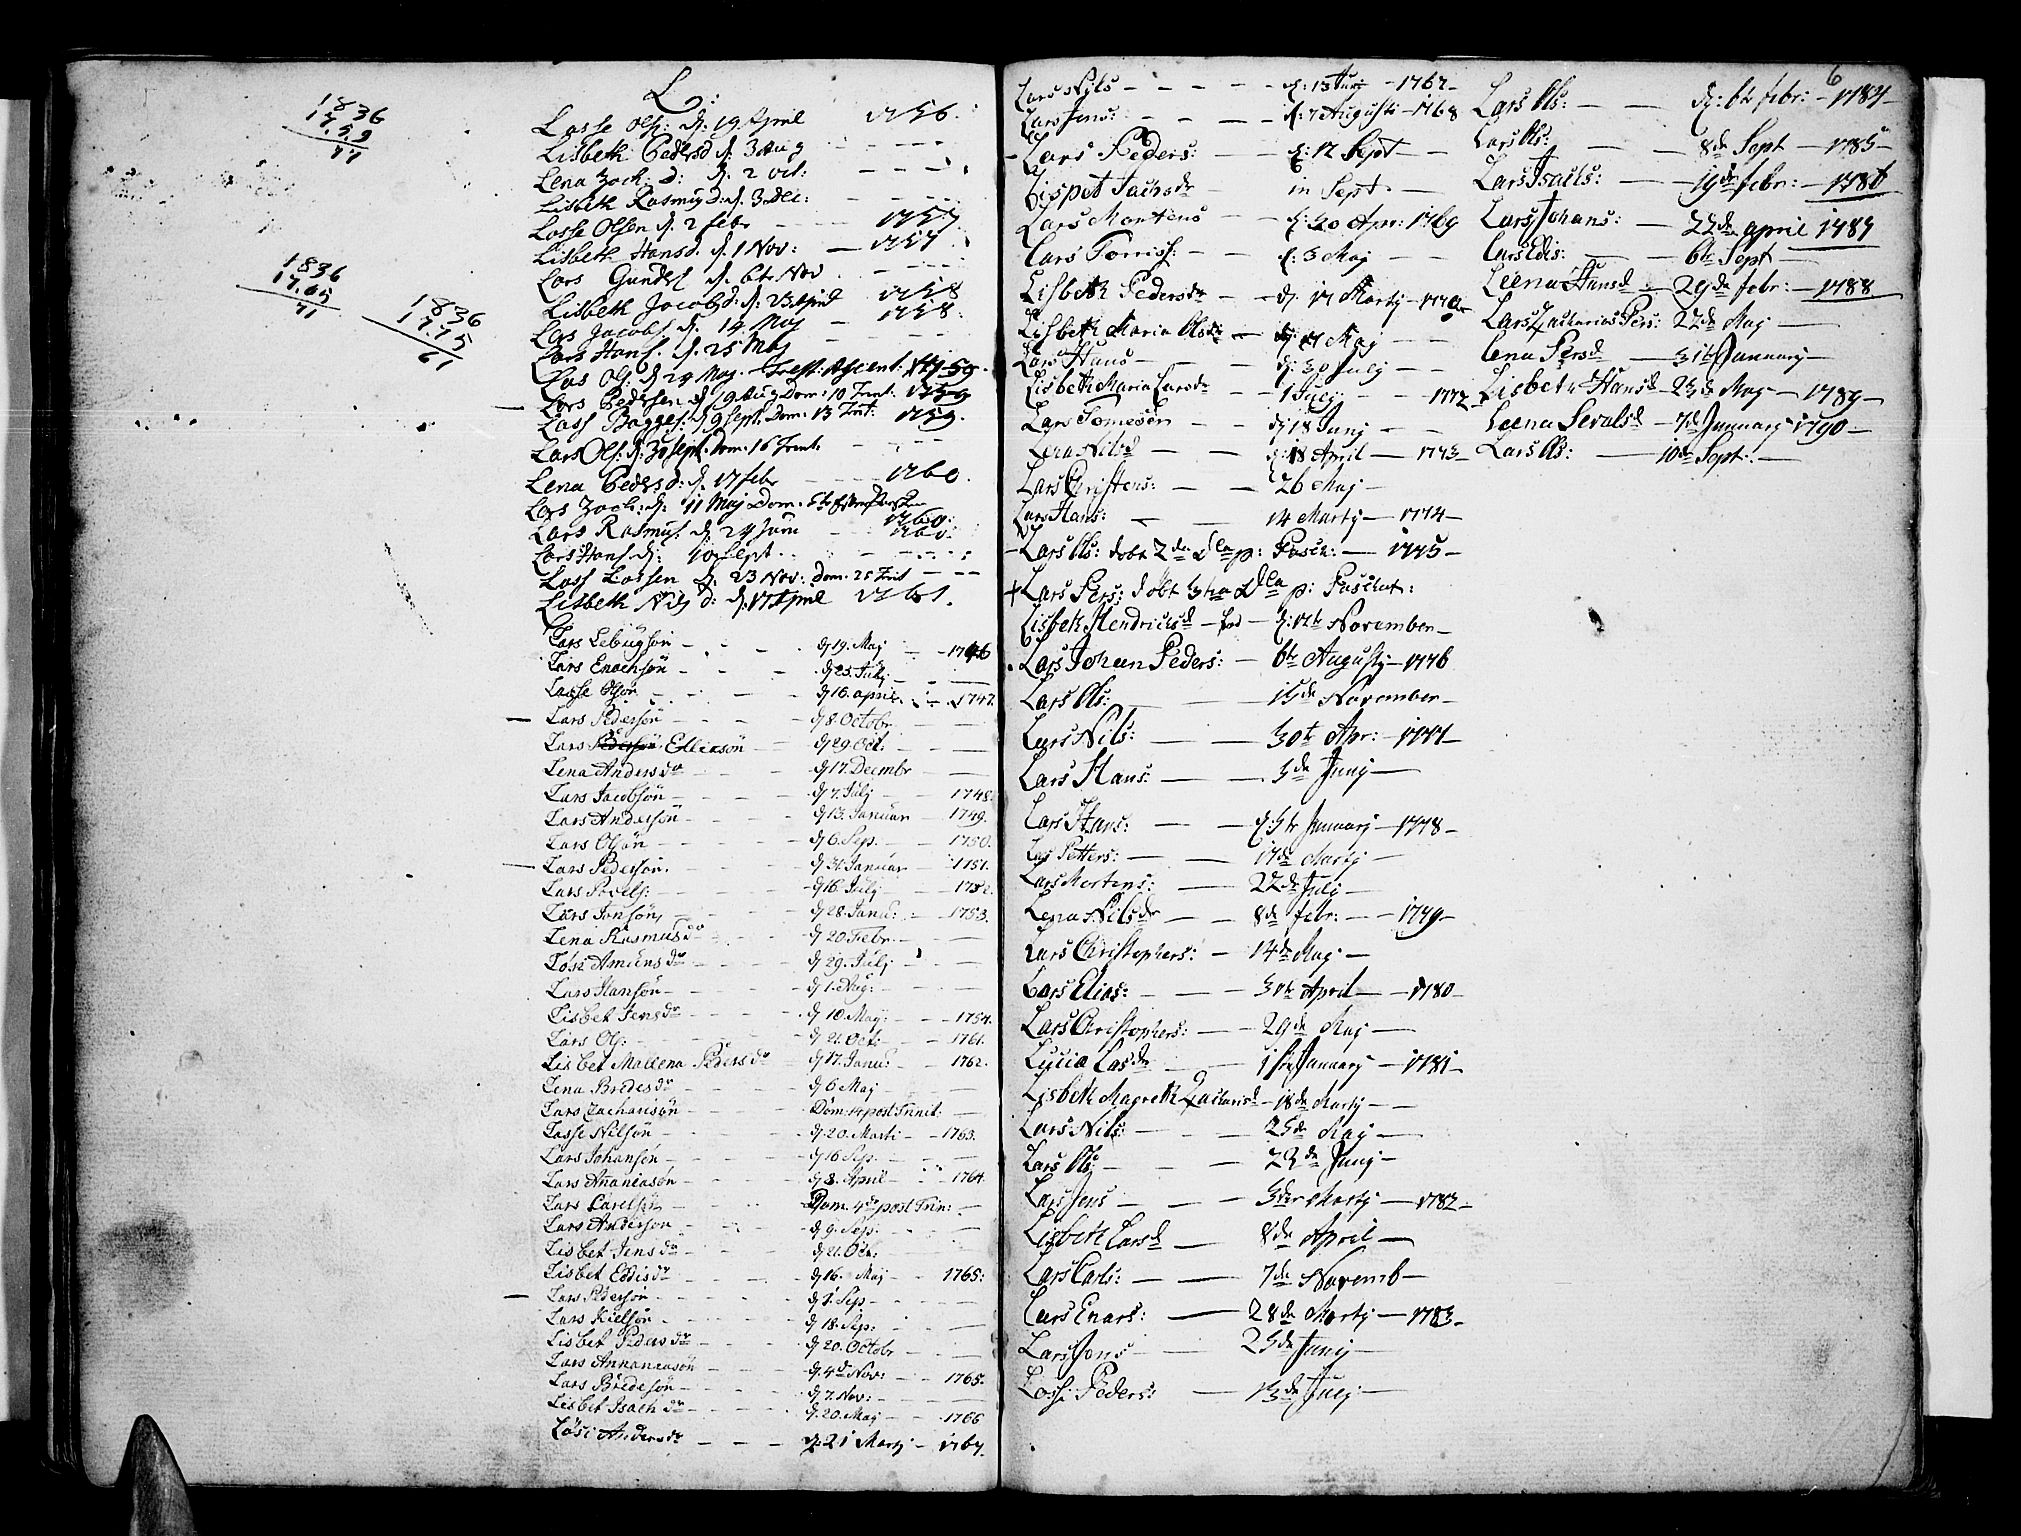 L:
1836
17.59
77
1836
17.65
71
1836
1775
61
Lasse Ols: d. 19 April 1756.
Lisbeth Pedersd d. 3 Aug
Lena Zach: d: d. 2 oct:
Lisbeth Rasmus d. d. 3 Dec:
Lasse Olsen d. 2 febr 1757
Lisbeth Hansd. d. 1 Nov: 1757
Lars Gundes d. 6te Nov
Lisbeth Jacobsd: d: 23 April 1758
Lars Jacobs. d. 14 Maj 1758.
Lars Hans. d. 25 Maj
Lars Ols: d 24 Maj. Fest: Ascent: 1759.
Lars Pedersen d 19 Aug Dom: 10 Trinit: 1759
Lass Bagges: d 9 Sept. Dom: 13 Trit: 1759.
Lars Ols: d: 30 Sept. Dom: 16 Trinit.
Lena Pedersd: d. 17 febr 1760.
Lars Zach: d: 11 Maj Dom.
Lars Rasmus. d. 24 Juni 1760.
Lars Hans. d: Sept.
Lass Lassen d. 23 Nov: Dom. 25 Trit
Lisbeth Nils d: d. 17 April 1761.
Lars Lebugsøn d 19. Maj 1746
Lars Enochsøn d 25. Julj
Lasse Olsøn d 16. april 1747.
Lars Pedersøn d 8. Octobr
Lars Pedersøn Elliasøn d 29. Oct:
Lena Andersdr d 17. Decmbr
Lars Jacobsøn d 7. Julj 1748.
Lars Andersøn d 13. Januar 1749.
Lars Olsøn d 6. Sep. 1750.
Lars Pedersøn. d 31. Januar 1751.
Lars Povels: d 16. Julj 1752.
Lars Jonsøn d 28. Janu: 1753.
Lena Rasmusdr d 20. Febr.
Løsi Amunsdr d 29. Julj
Lars Hansøn d 1. Aug:
Lisbet Jensdr d 10. Maj 1754.
Lars Ols: d 21. Oct: 1761.
Lisbet Mallena Pedersdr d 17. Janu: 1762.
Lena Bredesdr d 6 Maj
Lars Zachariasøn Dom. 14 post Trinit:
Lasse Nilsøn d. 20. Marti 1763.
Lars Johansøn d 16 Sep.
Lars Ananiasøn d 8. April 1764.
Lars Carelsøn Dom. 4de post Trin:
Lars Andersøn d 9. Sep.
Lisbet Jensdr d 21. Oct.
Lisbet Eddisdr d 16. Maj 1765.
Lars Pedersøn d 1. Sep
Lars Kielsøn d 18. Sep:
Lisbet Pedersdr d 20. Octobr
Lars Annaniasøn d. 4de Nov: 1765.
Lars Bredesøn d 7. Nov:
Lisbet Isachdr d. 20. Maj 1766
Løsi Andersdr d: 21 Martj 1767.
Lars Nils d: 13 Junj 1767
Lars Jens: d: 7 Augusti 1768
Lars Peders: d: 17 Sept
Lispet Jachsdr in Sept.
Lars Mortens d: 30 Apr: 1769
Lars Tomiss: d: 3 Maj
Lisbeth Pedersdr d. 17 Martj 1770
Lisbeth Maria Olsdr d. 17 Maj
Lars Hans d: 30 Julj
Lisbeth Maria Larsdr 1 Julj 1772
Lars Tomesøn d 18 Junj
Lena Nilsd d: 18 April 1773
Lars Christens: 26 Maj
Lars Hans: 14 Martj 1774
Lars Ols: dobt 2de Dca p: Pasch: 1775
+ Lars Pers: dobt 3tia Dca p: Paschat:
Lisbeth Hendrichsd d: 12te November
Lars Johan Peders: 6te Augustj 1776
Lars Ols: 15de November
Lars Nils: 30te Apr: 1777
Lars Hans: 3de Junj
Lars Hans: d: 5te Januarj 1778
Lars Petters: 17de Martj
Lars Mortens: 22de Julj
Lena Nilsdr 8de febr: 1779
Lars Christophers: 14de Maj
Lars Elias: 3te April 1780
Lars Christophers: 29de Maj
Lucia Lasdr 1ste Januarj 1781
Lisbeth Magreth Zacharisd 18de Martj
Lars Nils: 25de Maj
Lars Ols 29de Junj
Lars Jens 3der Martj 1782
Lisbeth Larsd 8de April
Lars Carls: 7de Novemb
Lars Enars: 28de Martj 1783
Lars Jons 25de Junj
Lasse Peders: 13de Julj
6
Lars Ols: d: 6te febr: 1784
Lars Ols: 8de Sept 1785
Lars Isachs: 19de febr: 1786
Lars Johans: 22de april 1787
Lars Edis: 6te Sept
Leena Hansd 29de febr: 1788
Lars Zacharias Pers: 22de Maj
Lena Persd 31te Januarj
Lisbeth Hansd 23de Maj 1789
Leena Sevalsd 7de Januarj 1790
Lars Ols: 10de Sept: